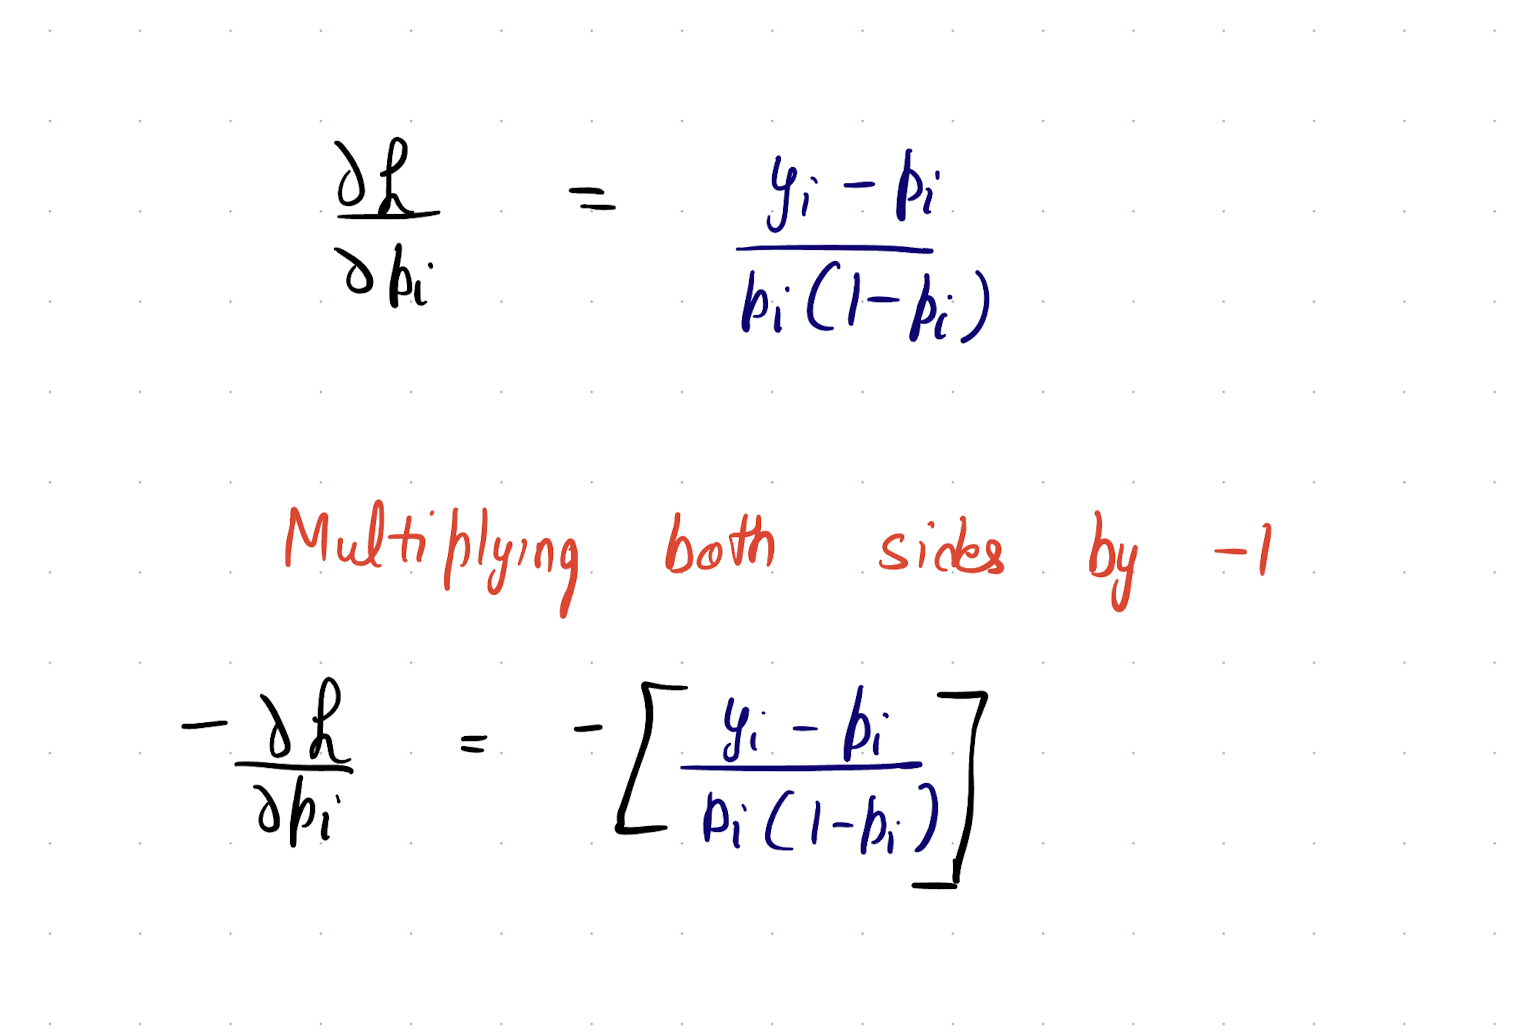 ∂h/∂pᵢ = (yᵢ − pᵢ) / (pᵢ(1−pᵢ))
Multiplying both sides by −1
−∂h/∂pᵢ = −[(yᵢ − pᵢ) / (pᵢ(1−pᵢ))]